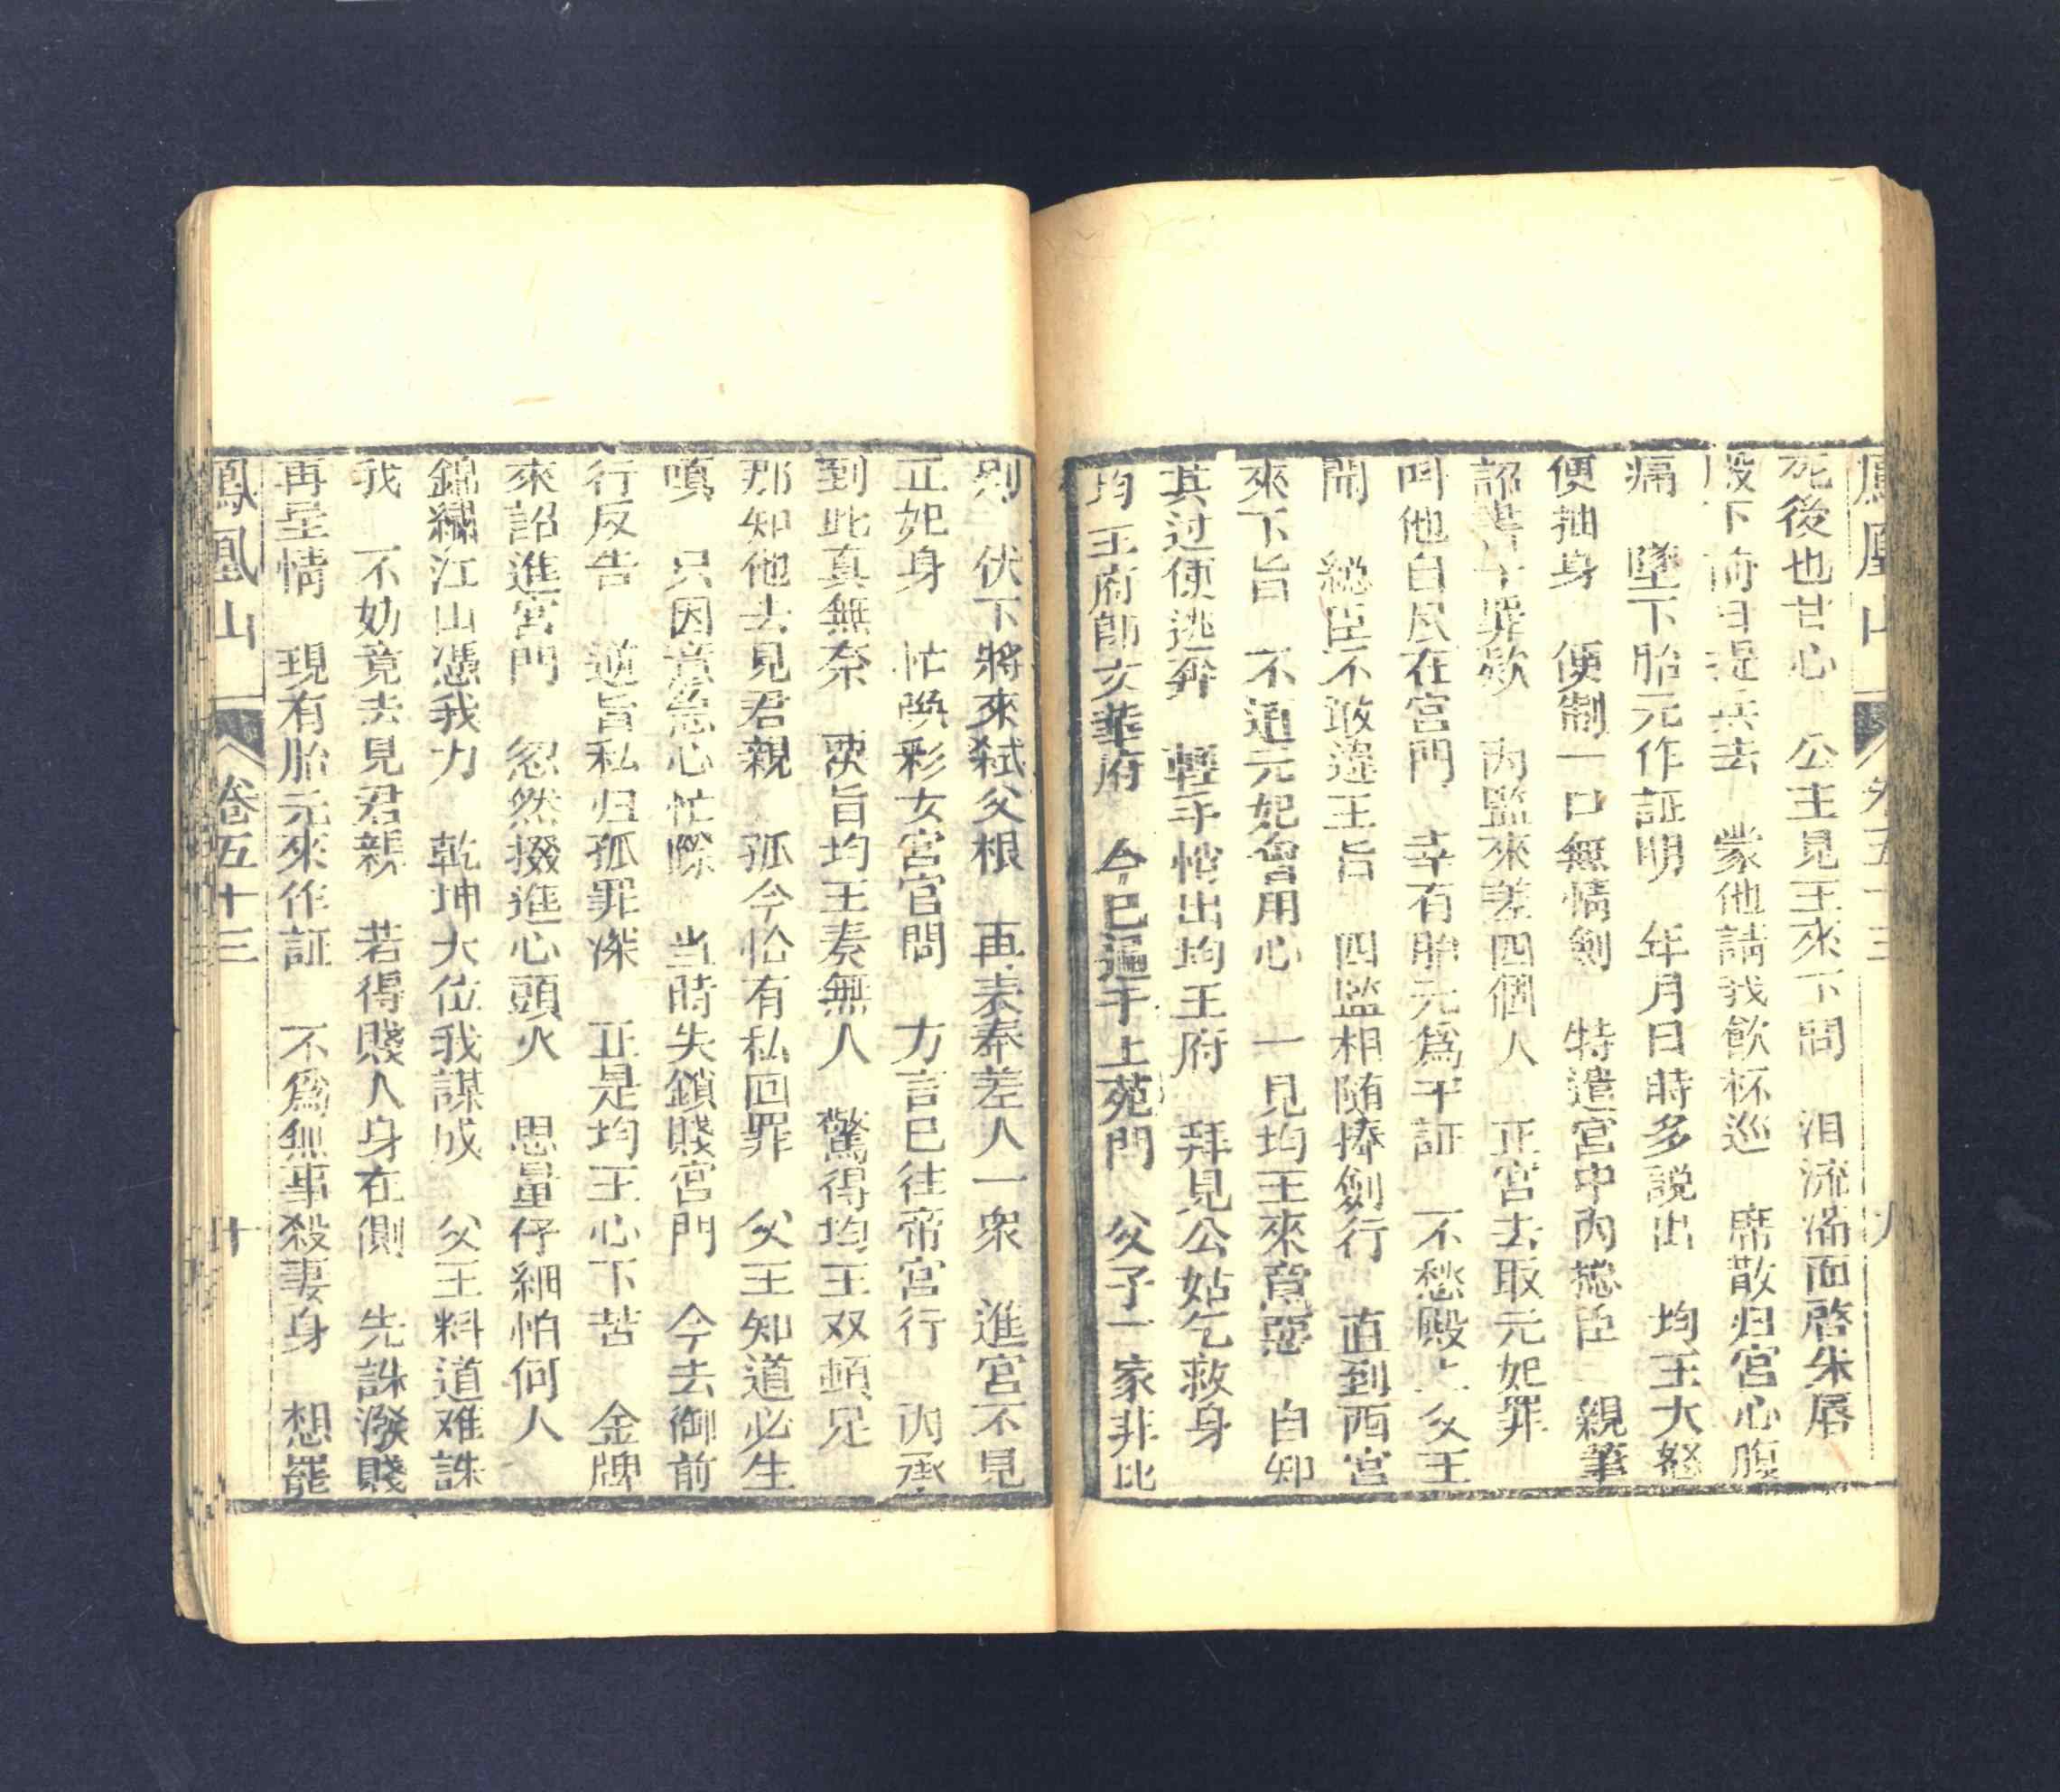 鳳凰山 卷五十三 九
死後也甘心 公主見王來下問 泪流滿面啓朱唇
殿下前日提兵去 蒙他請我飲杯巡 席散归宮心腹
痛 墜下胎元作証明 年月日時多説出 均王大怒
便抽身 便制一口無情劍 特遣宮中內揔臣 親筆
詔書罪欵 內監來差四個人 正宮去取元妃罪
呌他自尽在宮門 幸有胎元爲干証 不愁殿上父王
聞 總臣不敢違王旨 四监相随捧劍行 直到西宮
來下旨 不道元妃會用心 一見均王來意惡 自卸
其过便逃奔 輕手悄出均王府 拜見公姑乞救身
均王府郎文華府 今已逼于上苑門 父子一家非比
別 伏下將來弑父根 再表奉差人一衆 進宮不見
正妃身 忙喚彩女宮官問 方言巳往帝宮行 內丞
到此真無奈 覆旨均王奏無人 驚得均王双頓足
那知他去見君親 孤今恰有私回罪 父王知道必生
嗔 只因意急心忙際 当時失鎖賤宮門 今去御前
行反告 逆旨私归孤罪深 正是均王心下苦 金牌
來詔進宮門 忽然掇進心頭火 思量仔細怕何人
錦繡江山憑我力 乾坤大位我謀成 父王料道难誅
我 不妨竟去見君親 若得賤人身在側 先誅潑賤
再呈情 現有胎元來作証 不爲無事殺妻身 想罷
鳳凰山 卷五十三 十